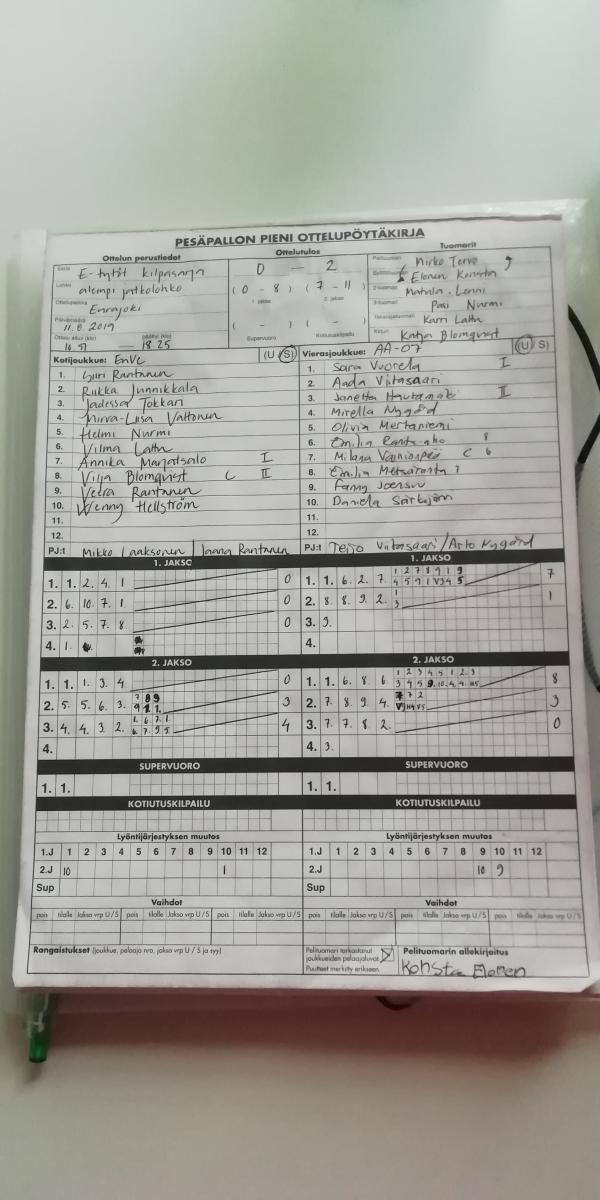 PESÄPALLON PIENI OTTELUPÖYTÄKIRJA
Ottelun perustiedot Ottelutulos Tuomarit
Sarja E-tytöt kilpasarja 0 — 2 Pelituomari Mirko Tervo
Lohko alempi jatkolohko (0 - 8) (7 - 11) Syöttötuomari Elonen Konsta
Ottelupaikka Eurajoki 1. jakso 2. jakso 2-tuomari Lenni
Päivämäärä 11.8.2019 3-tuomari Pasi Nurmi
( - ) ( - ) Takarajatuomari Karri Lattu
Ottelu alkoi (klo) 16.51 — päättyi (klo) 18.25 Supervuoro Kotiutuskilpailu Kirjuri Katja Blomqvist
Kotijoukkue: EuVe (U/S) Vierasjoukkue: AA-07 (U/S)
1. Siiri Rantanen 1. Sara Vuorela I
2. Riikka Junnikkala 2. Aada Viitasaari
3. Jadessa Tokkari 3. Janetta Hautamäki II
4. Mirva-Liisa Valtonen 4. Mirella Nygård
5. Helmi Nurmi 5. Olivia Mertaniemi
6. Vilma Lattu 6. Emilia 8
7. Annika Marjatsalo I 7. Milana Vainionpää C 6
8. Vilja Blomqvist C II 8. Emilia Metsäranta 7
9. Veera Rantanen 9. Fanny Joensuu
10. Wenny Hellström 10. Daniela
11. 11.
12. 12.
PJ:t Mikko Laaksonen / Jaana Rantanen PJ:t Teijo Viitasaari / Arto Nygård
1. JAKSO 1. JAKSO
1 2 7 8 9 1 9
1. 1. 2. 4. 1 0 1. 1. 6. 2. 7. 7
2. 6. 10. 7. 1. 0 2. 8. 8. 9. 2. 1
3. 2. 5. 7. 8 0 3. 9.
4. 1. 4.
2. JAKSO 2. JAKSO
1 2 3 4 5 1 2 3
1. 1. 1. 3. 4 0 1. 1. 6. 8. 6 8
2. 5. 5. 6. 3. 7 8 9 3 2. 7. 8. 9. 4. 7 7 2 3
3. 4. 4. 3. 2. 1. 6. 7. 1. 4 3. 7. 7. 8. 2. 0
4. 4. 3.
SUPERVUORO SUPERVUORO
1. 1. 1. 1.
KOTIUTUSKILPAILU KOTIUTUSKILPAILU
Lyöntijärjestyksen muutos Lyöntijärjestyksen muutos
1.J 1 2 3 4 5 6 7 8 9 10 11 12 1.J 1 2 3 4 5 6 7 8 9 10 11 12
2.J 10 1 2.J 10 9
Sup Sup
Vaihdot Vaihdot
pois tilalle Jakso vrp U/S pois tilalle Jakso vrp U/S pois tilalle Jakso vrp U/S pois tilalle Jakso vrp U/S pois tilalle Jakso vrp U/S pois tilalle Jakso vrp U/S
Rangaistukset (joukkue, pelaaja nro, jakso vrp U / S ja syy) Pelituomari tarkastanut Pelituomarin allekirjoitus
joukkueiden pelaajaluvat Konsta Elonen
Puutteet merkitty erikseen